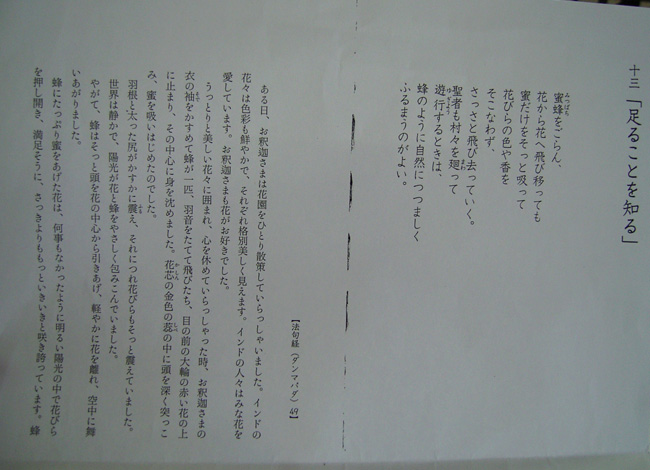 十三「足ることを知る」
蜜蜂をごらん、
花から花へ飛び移っても
蜜だけをそっと吸って
花びらの色や香を
そこなわず、
さっさと飛び去っていく。
聖者も村々を廻って
遊行するときは、
蜂のように自然につつましく
ふるまうのがよい。
【法句経（ダンマパダ）49】
ある日、お釈迦さまは花園をひとり散策していらっしゃいました。インドの
花々は色彩も鮮やかで、それぞれ格別美しく見えます。インドの人々はみな花を
愛しています。お釈迦さまも花がお好きでした。
うっとりと美しい花々に囲まれ、心を休めていらっしゃった時、お釈迦さまの
衣の袖をかすめて蜂が一匹、羽音をたてて飛びたち、目の前の大輪の赤い花の上
に止まり、その中心に身を沈めました。花芯の金色の蕊の中に頭を深く突っこ
み、蜜を吸いはじめたのでした。
羽根と太った尻がかすかに震え、それにつれ花びらもそっと震えていました。
世界は静かで、陽光が花と蜂をやさしく包みこんでいました。
やがて、蜂はそっと頭を花の中心から引きあげ、軽やかに花を離れ、空中に舞
いあがりました。
蜂にたっぷり蜜をあげた花は、何事もなかったように明るい陽光の中で花びら
を押し開き、満足そうに、さっきよりももっといきいきと咲き誇っています。蜂